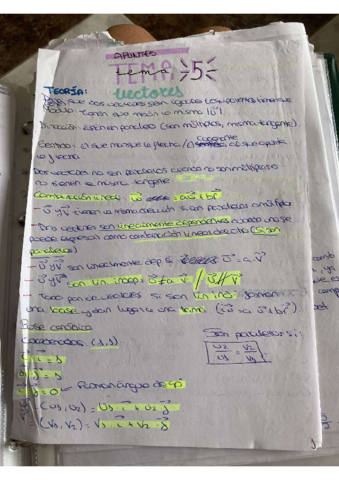 APUNTES
TEMA 5
vectores
TEORÍA:
Para que dos vectores sean iguales
módulo: Tienen que medir lo mismo |ū|
Dirección: estén en paralelo (son múltiplos, misma tangente).
Sentido: el que marque la flecha / el que apunte
la flecha
Dos vectores no son paralelos cuando no son múltiplos o
no tienen la misma tangente
Combinación lineal: w⃗ = au⃗ + bv⃗
- u⃗ y v⃗ tienen la misma dirección si son paralelos o múltiplos
- Dos vectores son linealmente dependientes cuando uno se
puede expresar como combinación lineal del otro (si son
paralelos)
- u⃗ y v⃗ son linealmente dep si u⃗ = a·v⃗
- u⃗ y v⃗ son lin indep u⃗ ≠ a·v⃗ // u⃗ ∦ v⃗
- Todo par de vectores si son lin ind forman
una base y dan lugar a una terna (w⃗ = a·u⃗ + bv⃗)
Base canónica
coordenadas: (1,1)
Son paralelos si:
u2/u1 = v2/v1
Forman ángulo de 90º
= (u1, u2) = u1 · i⃗ + u2 · j⃗
= (v1, v2) = v1 · i⃗ + v2 · j⃗